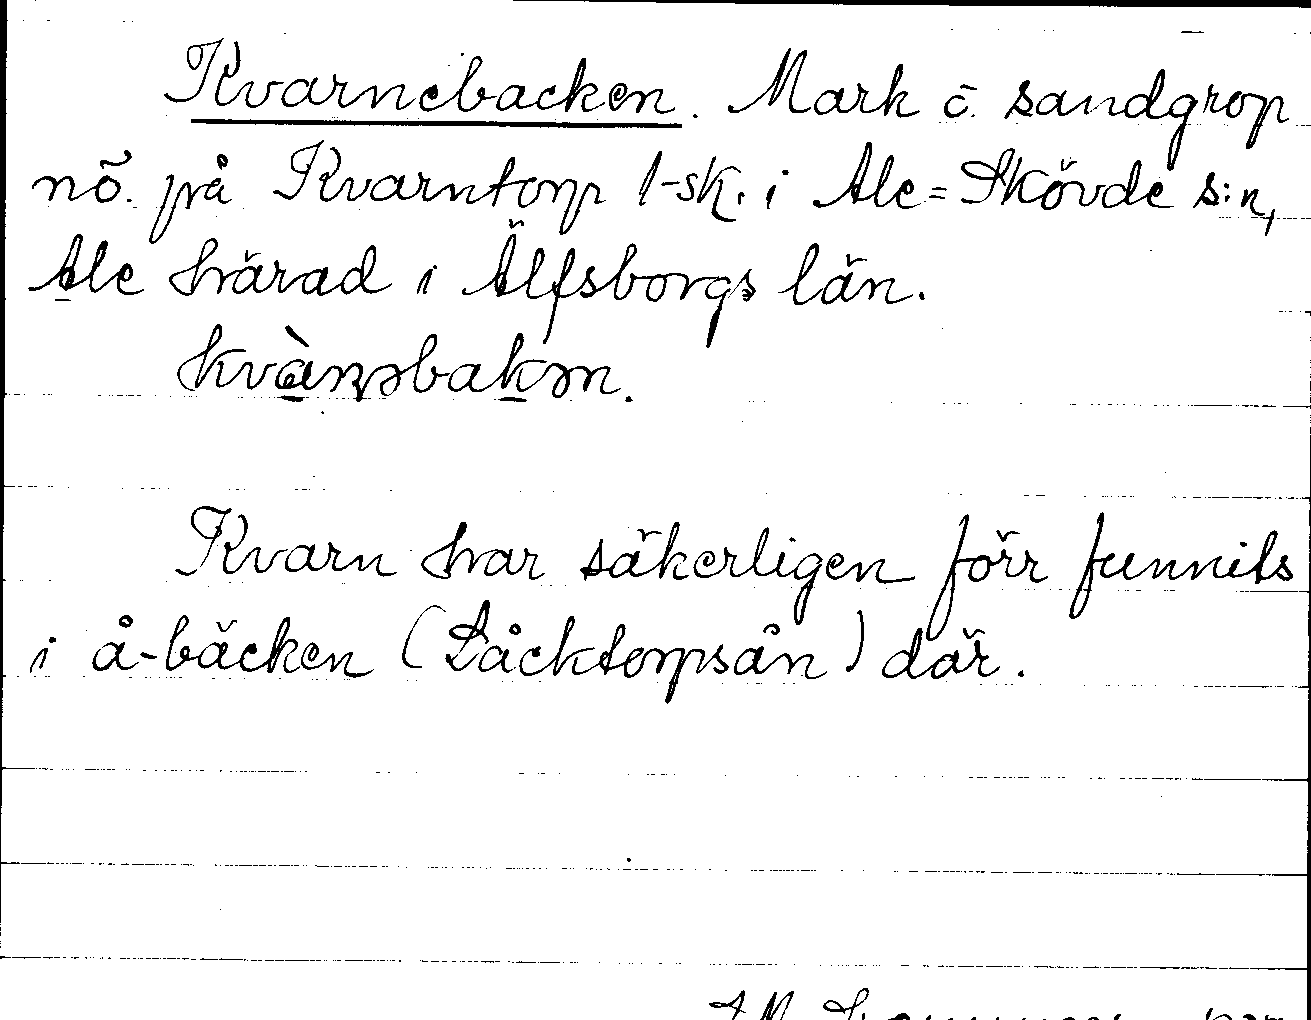 Kvarnebacken. Mark o. sandgrop
nö. på Kvarntorp 1-sk. i Ale=Skövde s:n,
Ale härad i Älfsborgs län.
kvànəbakən.
Kvarn har säkerligen förr funnits
i å-bäcken (Låcktorpsån) där.